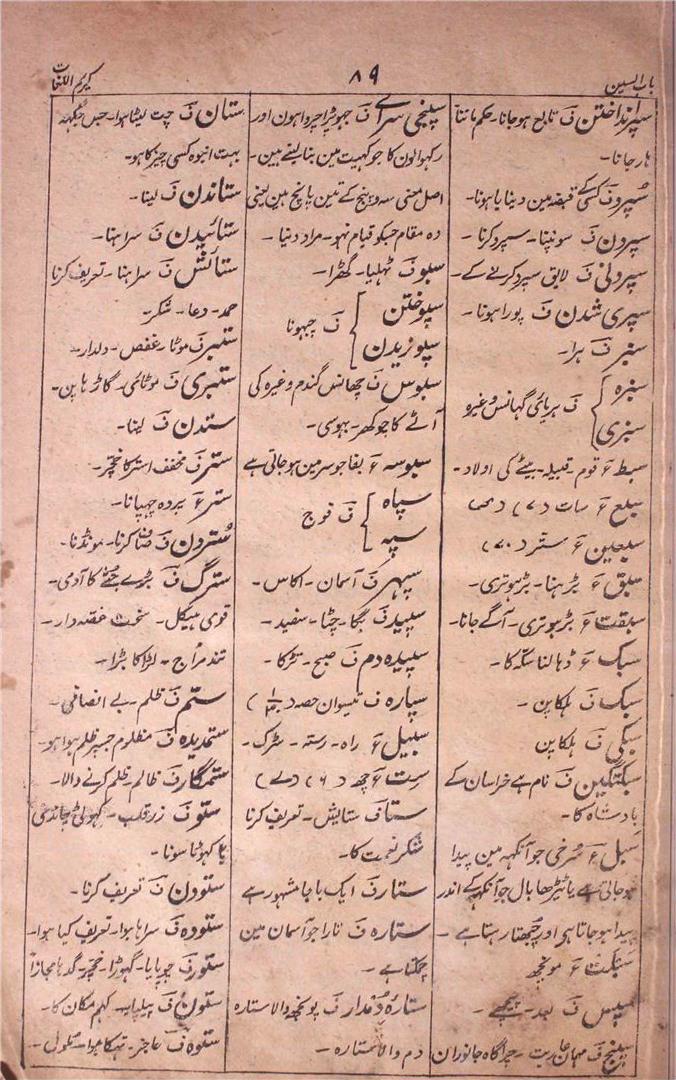 باب السین
۸۹
کریم اللغات
سپر انداختن ف تابع ہوجانا۔ حکم ماننا
ہار جانا۔
سُپرد ف کسی کے قبضہ مین دینا یا ہونا۔
سپردن ف سونپنا۔ سپرد کرنا۔
سپردنی ف لایق سپرد کرنے کے۔
سپری شدن ف پورا ہونا۔
سبز ف ہرا۔
سبزہ
سبزی
ف ہریائی گھانس وغیرہ
سبط ع قوم۔ قبیلہ۔ بیٹے کی اولاد۔
سبع ع سات (۷)
سبعین ع ستر (۷۰)
سبق ع بڑہنا۔ بڑہوتری۔
سبقت ع بڑہوتری۔ آگے جانا۔
سبک ع ڈہالنا سکہ کا۔
سبک ف ہلکا پن۔
سبکی ف ہلکا پن
سبکتگین ف نام ہے خراسان کے
بادشاہ کا۔
سبل ع سُرخی جو آنکہہ مین پیدا
ہوجاتی ہے یا ٹیڑھا بال جو آنکہہ کے اندر
پیدا ہوجاتا ہی اور چُبھتا رہتا ہے۔
سبلت ع مونچھ
سپس ف بعد۔ پیچھے۔
سپنج ف مہمان عاریت۔ چراگاہ جانوران
سپنجی سرائے ف جہونپڑا چرواہون اور
رکہوالون کا جو کہیت مین بنا لیتے ہین۔
اصل معنی سہ و پنج کے تین پانچ ہین یعنی
وہ مقام جسکو قیام نہو۔ مراد دنیا۔
سبو ف ٹہلیا۔ گھڑا۔
سپوختن
سپوزیدن
ف چبہونا
سبوس ف چھانس گندم وغیرہ کی
آٹے کا چوکھر۔ بہوسی۔
سبوسہ ع بفا جو سر مین ہوجاتی ہے
سپاہ
سپہ
ف فوج
سپہر ف آسمان۔ اکاس۔
سپید ف بگا۔ چٹا۔ سفید۔
سپیدہ دم ف صبح۔ تڑکا۔
سپارہ ف تیسوان حصہ (۱/۳۰)
سبیل ع راہ۔ رستہ۔ سڑک۔
ست ع چھہ (۶)
ستا ف ستایش۔ تعریف کرنا
شکر نعمت کا۔
ستار ف ایک باجا مشہور ہے
ستارہ ف تارا جو آسمان مین
چمکتا ہے۔
ستارۂ دُمدار ف پونچھ والا ستارہ
دم والا ستارہ۔
ستان ف چت لیٹا ہوا۔ جس جگہہ
بہت انبوہ کسی چیز کا ہو۔
ستاندن ف لینا۔
ستائیدن ف سراہنا۔
ستائش ف سراہنا۔ تعریف کرنا
حمد۔ دعا۔ شکر۔
ستبر ف موٹا۔ غفص۔ دلدار۔
ستبری ف موٹائی۔ گاڑہا پن۔
ستدن ف لینا۔
ستر ف مخفف استر کا خچر۔
ستر ع پردہ چھپانا۔
سُتردن ف صاف کرنا۔ مونڈنا۔
سترگ ف بڑے جُثّے کا آدمی۔
قوی ہیکل۔ سخت غصہ دار۔
تند مزاج۔ لڑاکا بڑا۔
ستم ف ظلم۔ بے انصافی۔
ستمدیدہ ف مظلوم جسپر ظلم ہوا ہو۔
ستمگار ف ظالم ظلم کرنے والا۔
ستو ف زر قلب۔ کہوٹی چاندی
یا کہوٹا سونا۔
ستودن ف تعریف کرنا۔
ستودہ ف سراہا ہوا۔ تعریف کیا ہوا۔
ستور ف چوپایا۔ گہوڑا۔ خچر۔ گدہا مجازاً
ستون ف پیلپایہ۔ کہم مکان کا۔
ستوہ ف عاجز۔ تہکا ہوا۔ ملول۔